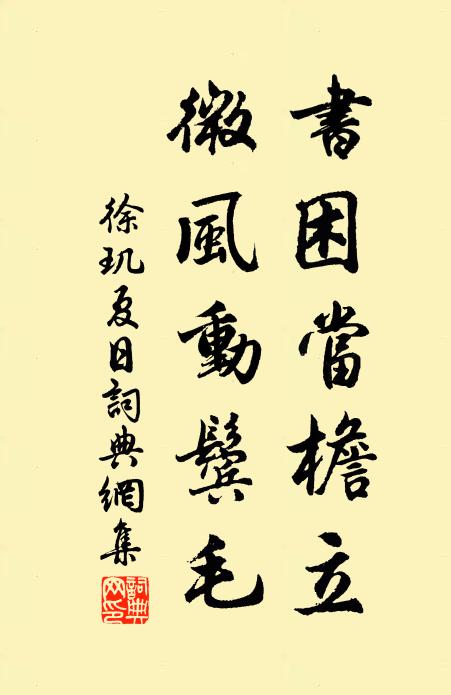 書困當檐立
微風動鬓毛
徐玑夏日詞典網集
詞典
网印